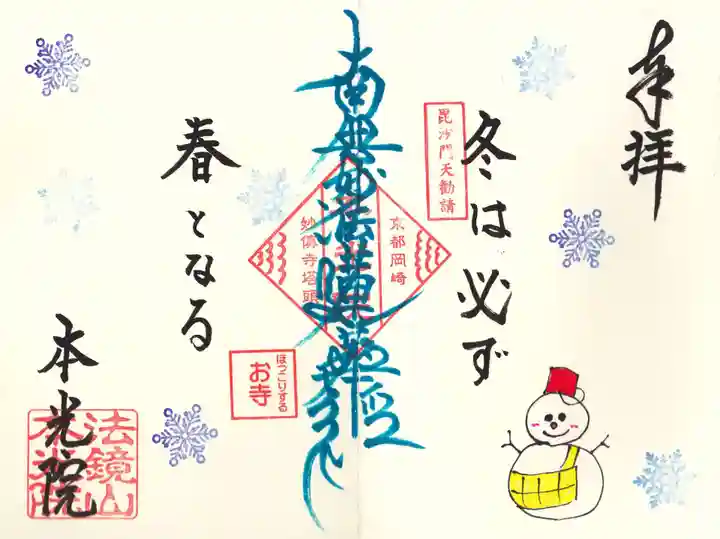 奉拝
毘沙門天勧請
冬は必ず
京都岡崎
南無妙法蓮華経
妙傳寺塔頭
春となる
ほっこりする
お寺
本光院
法鏡山
本光院